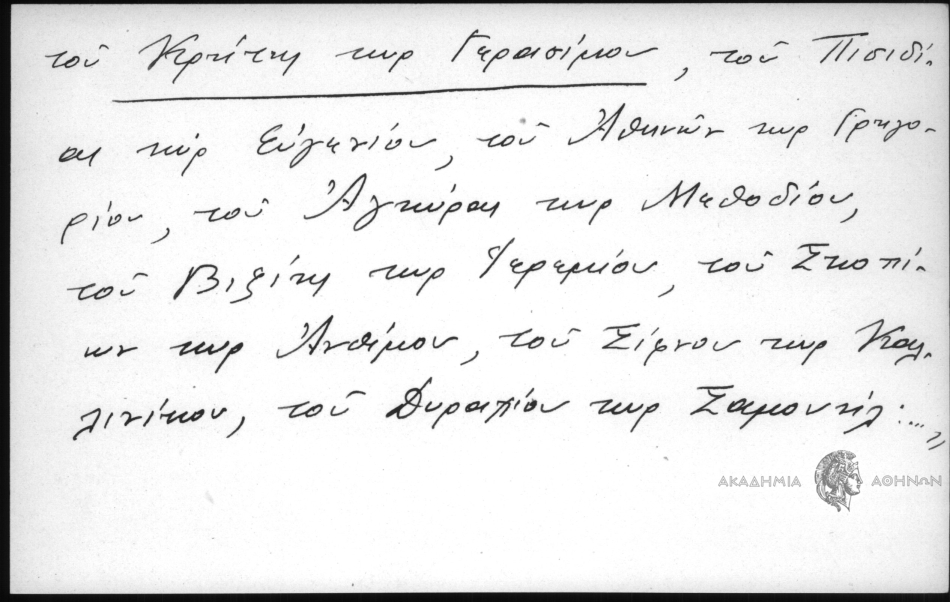 τοῦ Κρήτης κυρ Γερασίμου, τοῦ Πισιδί-
ας κύρ Εὐγενίου, τοῦ Ἀθηνῶν κυρ Γρηγο-
ρίου, τοῦ Ἀγκύρας κυρ Μεθοδίου,
τοῦ Βιζύης κυρ Ἱερεμίου, τοῦ Σκοπί-
ων κυρ Ἀνθίμου, τοῦ Σίφνου κυρ Καλ-
λινίκου, τοῦ Δυραχίου κυρ Σαμουήλ:...,,
ΑΚΑΔΗΜΙΑ ΑΘΗΝΩΝ